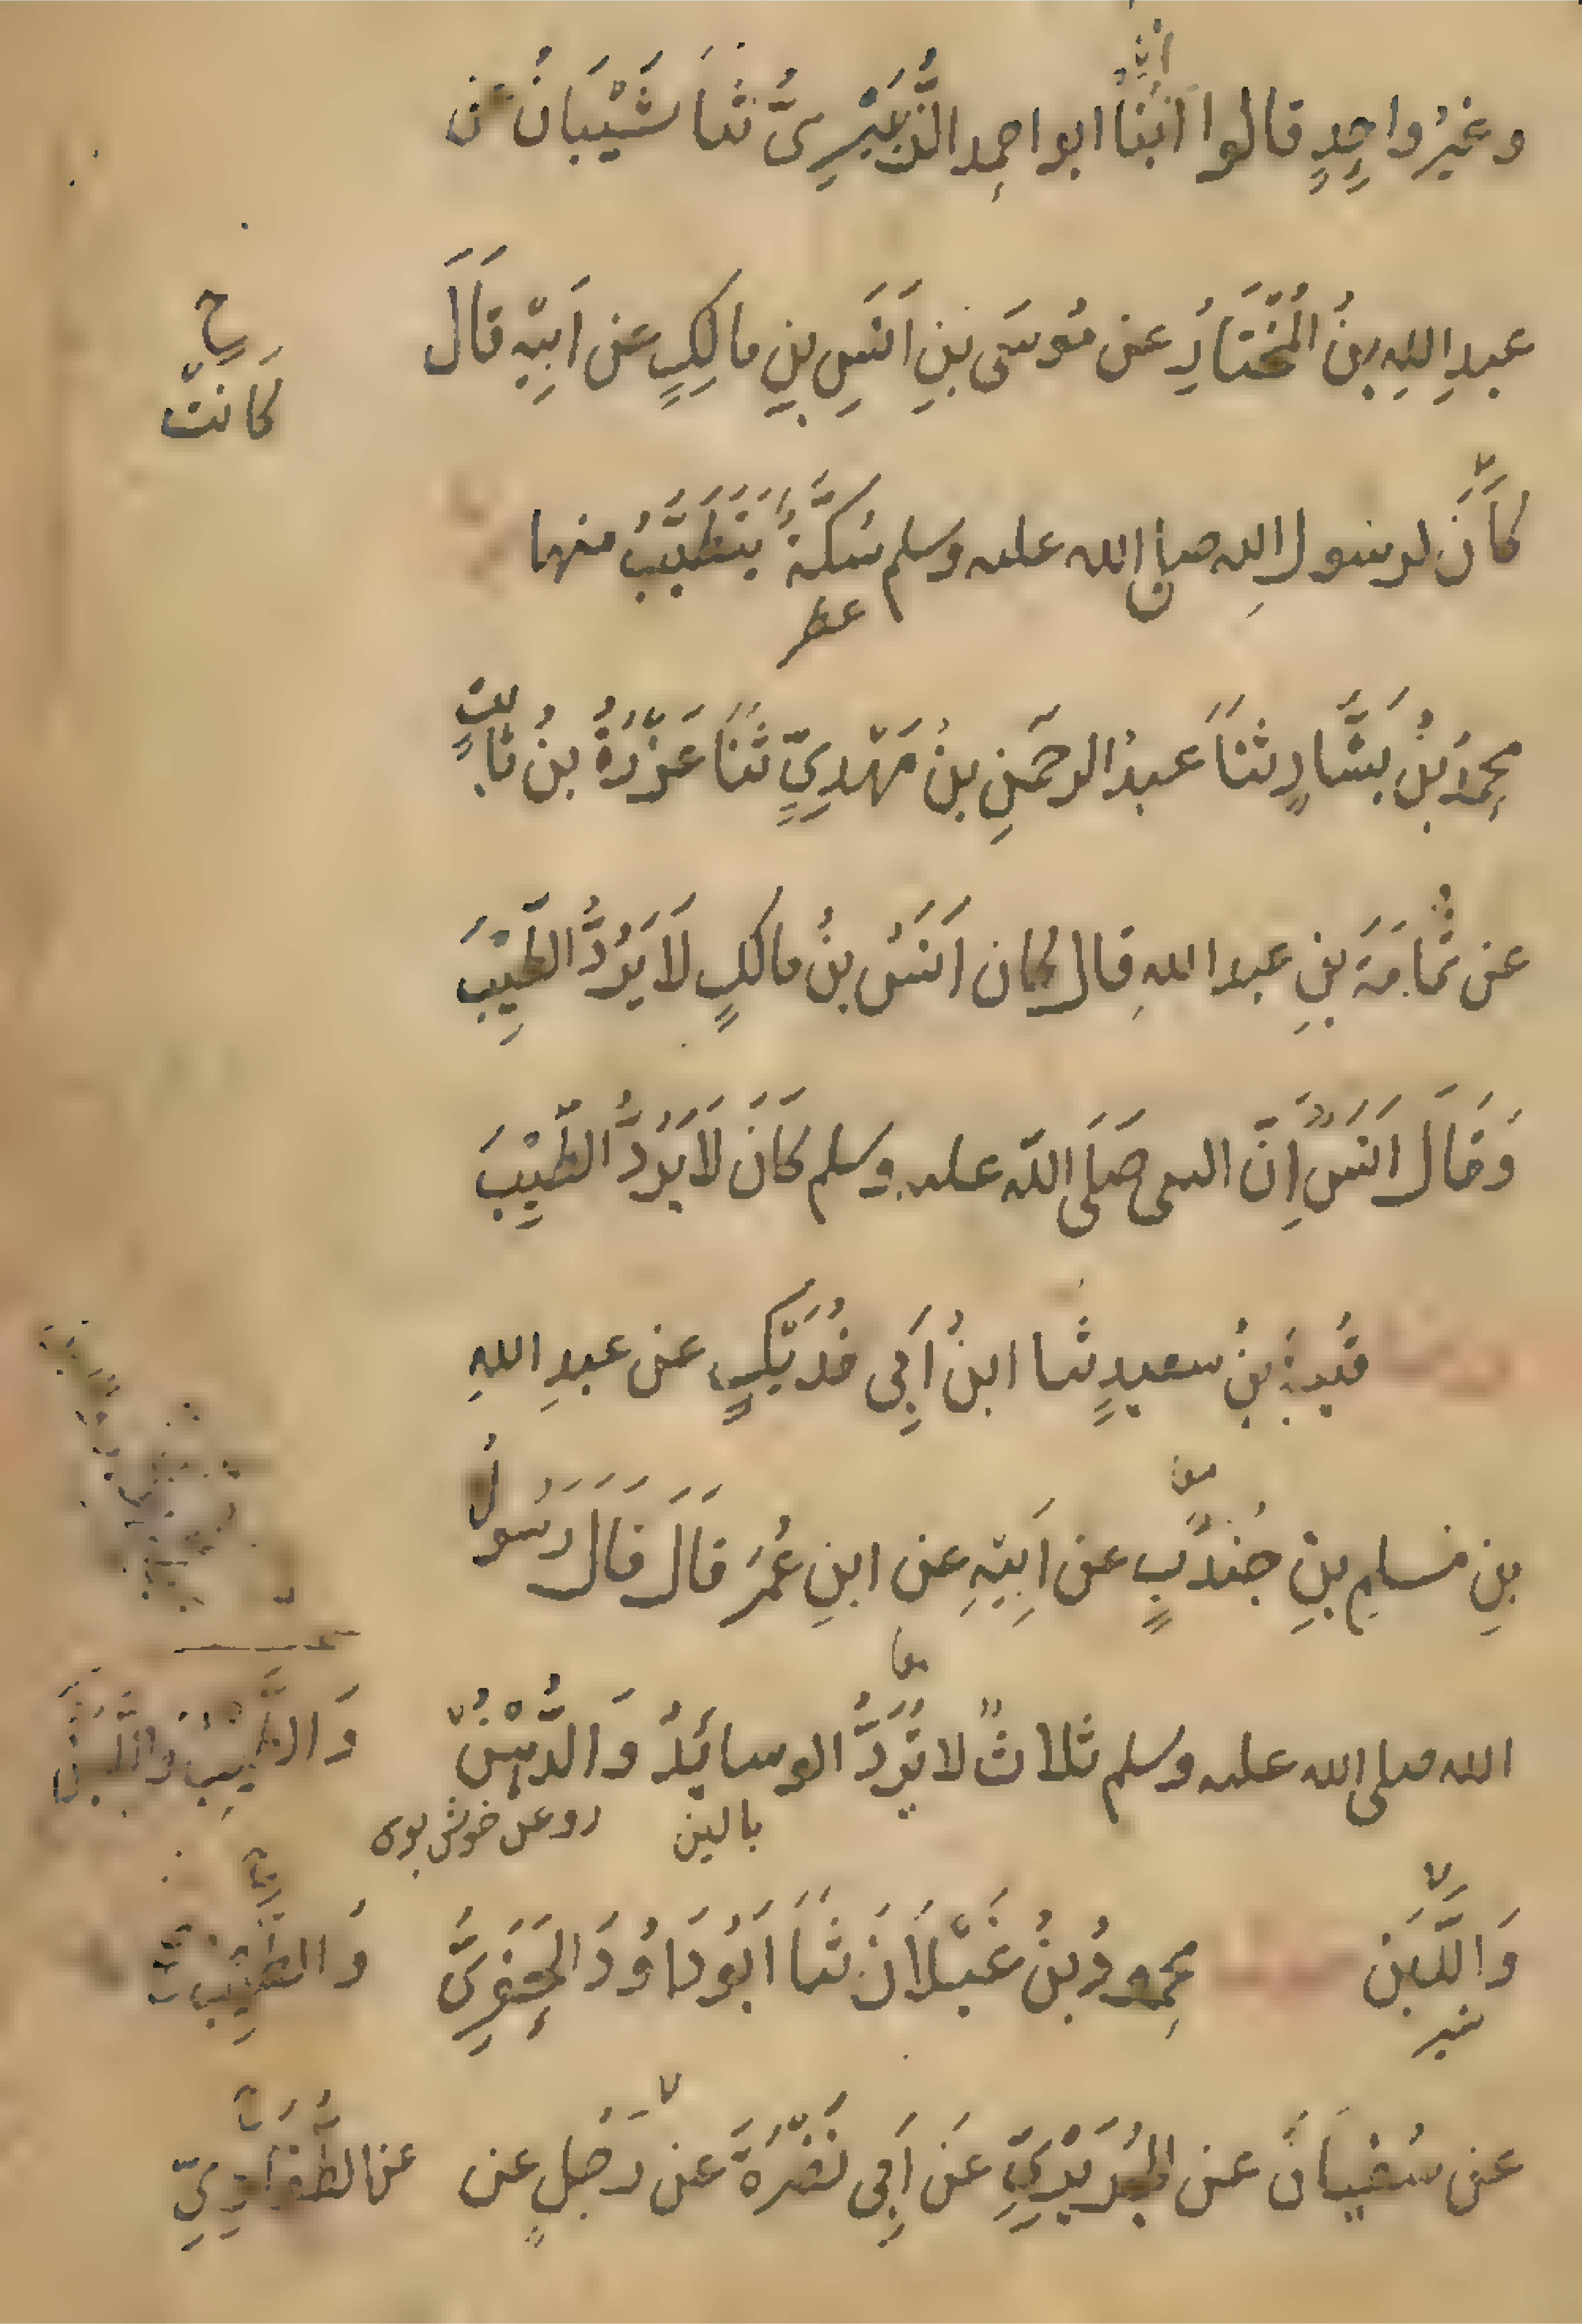 وغَيْرُ واحِدٍ قالوا اَنْبَنَاَ ابو احمد الزُّبَيْرِىُّ ثنَا شَيْبَانُ عن
عبدِ اللهِ بنُ الْمُخْتَارِ عن مُوسَى بْنِ اَنَسِ بنِ مالِكٍ عَن اَبِيْهِ قَالَ
ح
كَانَتْ
كَاَنَ لرسولِ الله صلى الله عليه وسلم سُكَّةٌ يَتَطَيَّبُ منها
عطر
محمدُ بْنُ بَشَّارٍ ثنَاَ عبدُ الرحمَنِ بنُ مَهْدِيٍّ ثَنَا عَزْرَةُ بنُ ثابتٍ
عن ثُمَامَةَ بنِ عبد اللهِ قال كان اَنَسُ بنُ مالكٍ لَا يَرُدُّ الطِّيْبَ
وَقَالَ اَنَسٌ اِنَّ النبى صَلَى اللّه عليه وسلم كَانَ لَا يَرُدُّ الطِّيْبَ
قتيبةُ بنُ سعيدٍ ثنا ابنُ اَبِى فُدَيْكٍ عن عبدِ اللهِ
بنِ مسلمِ بنِ جُنْدَبٍ عن اَبِيْهِ عن ابنِ عُمَرَ قالَ قَالَ رَسُولُ
معا
الله صلى الله عليه وسلم ثلاثٌ لا تُرَدُّ الوسائِدُ وَالدُّهْنُ
معا
وَالطِّيْبُ وَاللَّبَنُ
بالين
روغن خوش بوى
وَاللَّبَن
شير
محمودُ بنُ غَيْلَاَنَ ثنَاَ اَبُو دَاوُدَ الْحَفَرِىُّ
وَالطِّيْبُ
عن سُفْيانَ عن الْجُرَيْرِيِّ عَن اَبِى نَضْرَةَ عَن رَجُلٍ عن
عن الطُّفَاوِيِّ